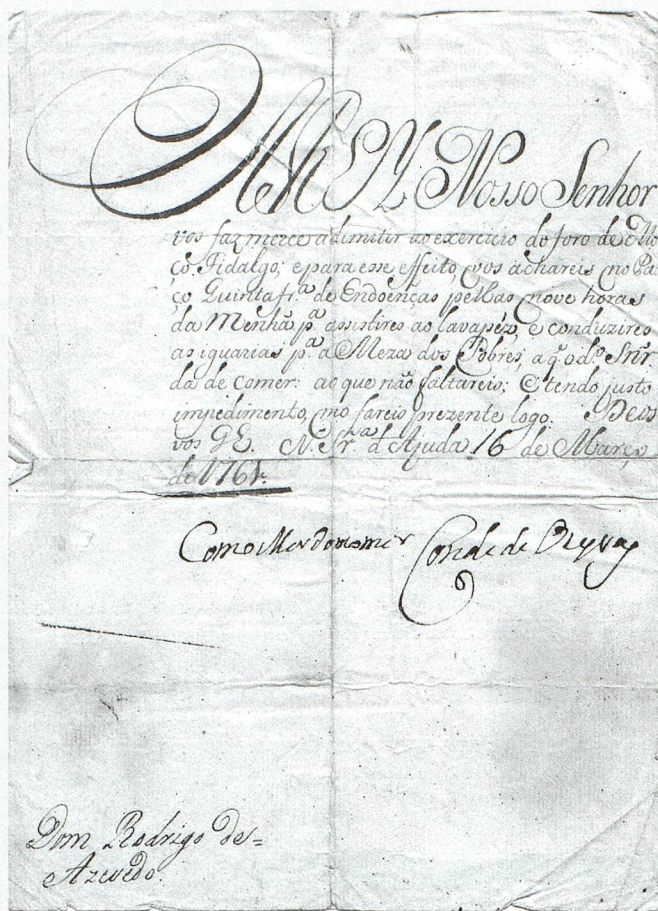 El Rey Nosso Senhor
vos faz merce adimitir ao exercicio do foro de Mo
ço Fidalgo; e para esse effeito, vos achareis no Pa
ço Quinta fr.ª de Endoenças pellas nove horas
da Menhã p.ª assistires ao lavapéz, e conduzires
as iguarias p.ª a Meza dos Pobres, a q̃ o d.º Snr̃
dá de comer: ao que não faltareis; E tendo justo
impedimento, mo fareis prezente logo. Deos
vos G.E. N. Sr.ª d'Ajuda 16 de Março
de 1761.
Como Mordomo mor Conde de
Dom Rodrigo de=
Azevedo.